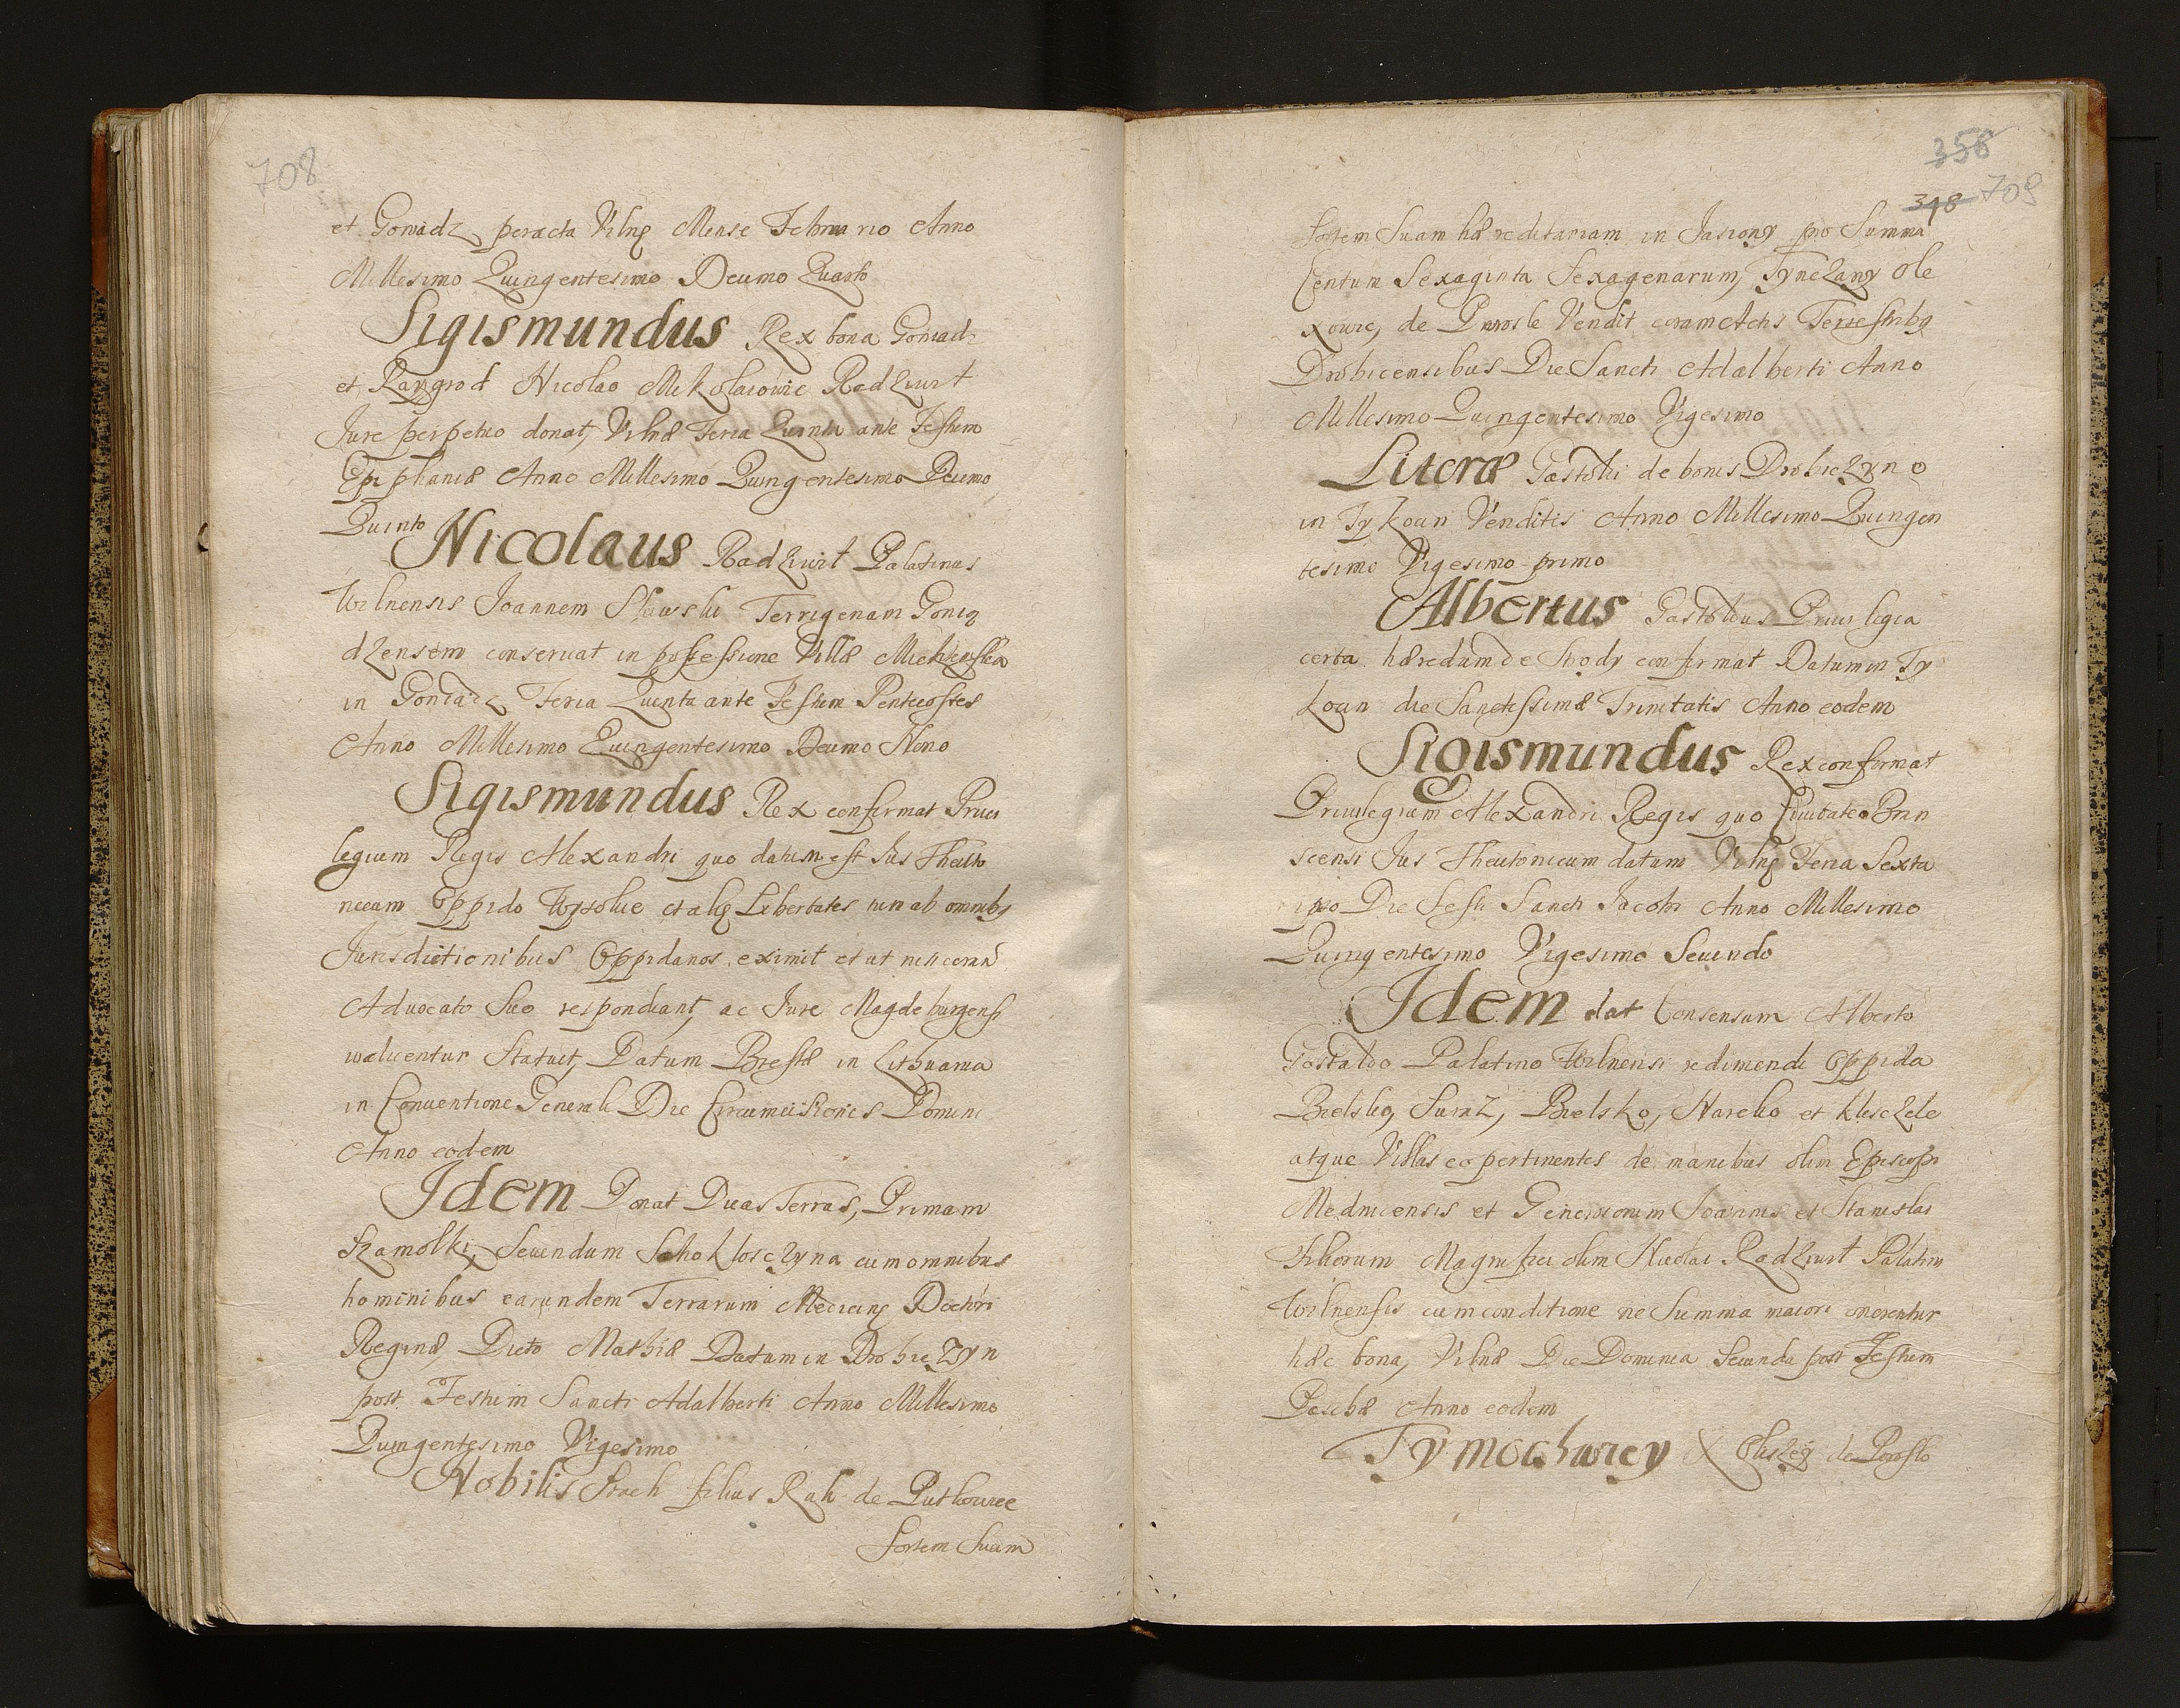 708
et Goniadz peracta Vilnę Mense Februario Anno
Millesimo Quingentesimo Decimo Quarto
Sigismundus Rex bona Goniadz
et Raygrod Nicolao Mikolaiowic Radziwił
Jure perpetuo donat, Vilnæ Feria Quinta ante Festum
Epiphaniæ Anno Millesimo Quingentesimo Decimo
Quinto
Nicolaus Radziwił Palatinus
Wilnensis Joannem Sławski Terrigenam Gonią
dzensem conseruat in possessione Villæ
in Goniądz Feria Quinta ante Festum Pentecostes
Anno Millesimo Quingentesimo Decimo Nono
Sigismundus Rex confirmat Priui
legium Regis Alexandri quo datum est Jus Theuto
nicum Oppido Wysokie et alię Libertates tum ab omnibꝯ
Jurisdictionibus Oppidanos eximit et ut nisi coram
Aduocato Suo respondeant, ac Jure Magdeburgensi
iudicentur Statuit, Datum Brestæ in Lithuania
in Conuentione Generali Die Circumcisionis Domini
Anno eodem
Idem Donat Duas Terras, Primam
Szamolki, Secundam Sehoklosczyna cum omnibus
hominibus earundem Terrarum Medicinę Doctori
Reginæ Dicto Mathiæ Datum in Drohiczyn
post Festum Sancti Adalberti Anno Millesimo
Quingentesimo Vigesimo
Nobilis Stach filius Rak de Putkowice
Sortem Suam
358
348 709
Sortem Suam hæreditariam in Jasiony pro Summa
Centum Sexaginta Sexagenarum, Tynczany Ole
xowic, de Pierosle Vendit coram Actis Terrestribꝯ
Drohicensibus Die Sancti Adalberti Anno
Millesimo Quingentesimo Vigesimo
Literæ Gastoldi de bonis Drohiczyno
in Tykocin Venditis Anno Millesimo Quingen
tesimo Vigesimo primo
Albertus Gastoldus Priuilegia
certa hæredum de Srody confirmat Datum in Ty
kocin die Sanctissimæ Trinitatis Anno eodem
Sigismundus Rex confirmat
Priuilegium Alexandri Regis quo Ciuitate Bran
scensi Jus Theutonicum datum Vilnę Feria Sexta
ipso Die Festi Sancti Jacobi Anno Millesimo
Quingentesimo Vigesimo Secundo
Idem dat Consensum Alberto
Gostaldo Palatino Wilnensi redimendi Oppida
Bielsko, Suraz, Bielsko, Narelio et Kleszele
atque Villas eo pertinentes de manibus olim Episcopi
Mednicensis et Generosorum Joannis et Stanislai
Filiorum Magnifici olim Nicolai Radziwił Palatini
Wilnensis cum conditione ne Summa maiori onerentur
hæc bona, Vilnæ Die Dominica Secunda post Festum
Paschæ Anno eodem
Tymochwiey X Oliszey de Poroslo